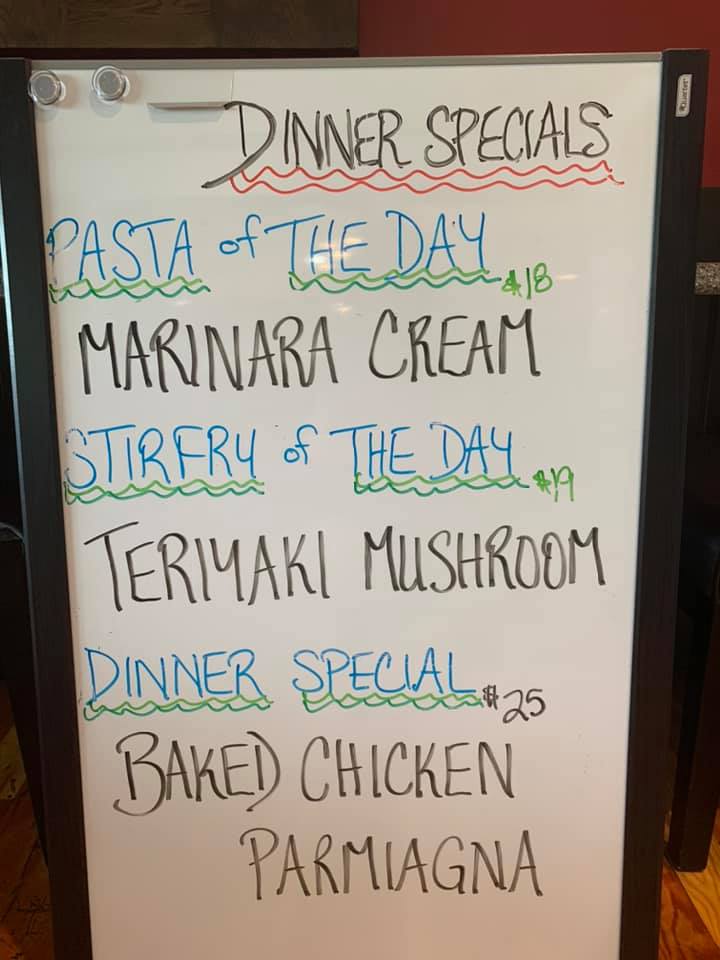 DINNER SPECIALS
PASTA of THE DAY $18
MARINARA CREAM
STIRFRY of THE DAY $19
TERIYAKI MUSHROOM
DINNER SPECIAL $25
BAKED CHICKEN
PARMIAGNA